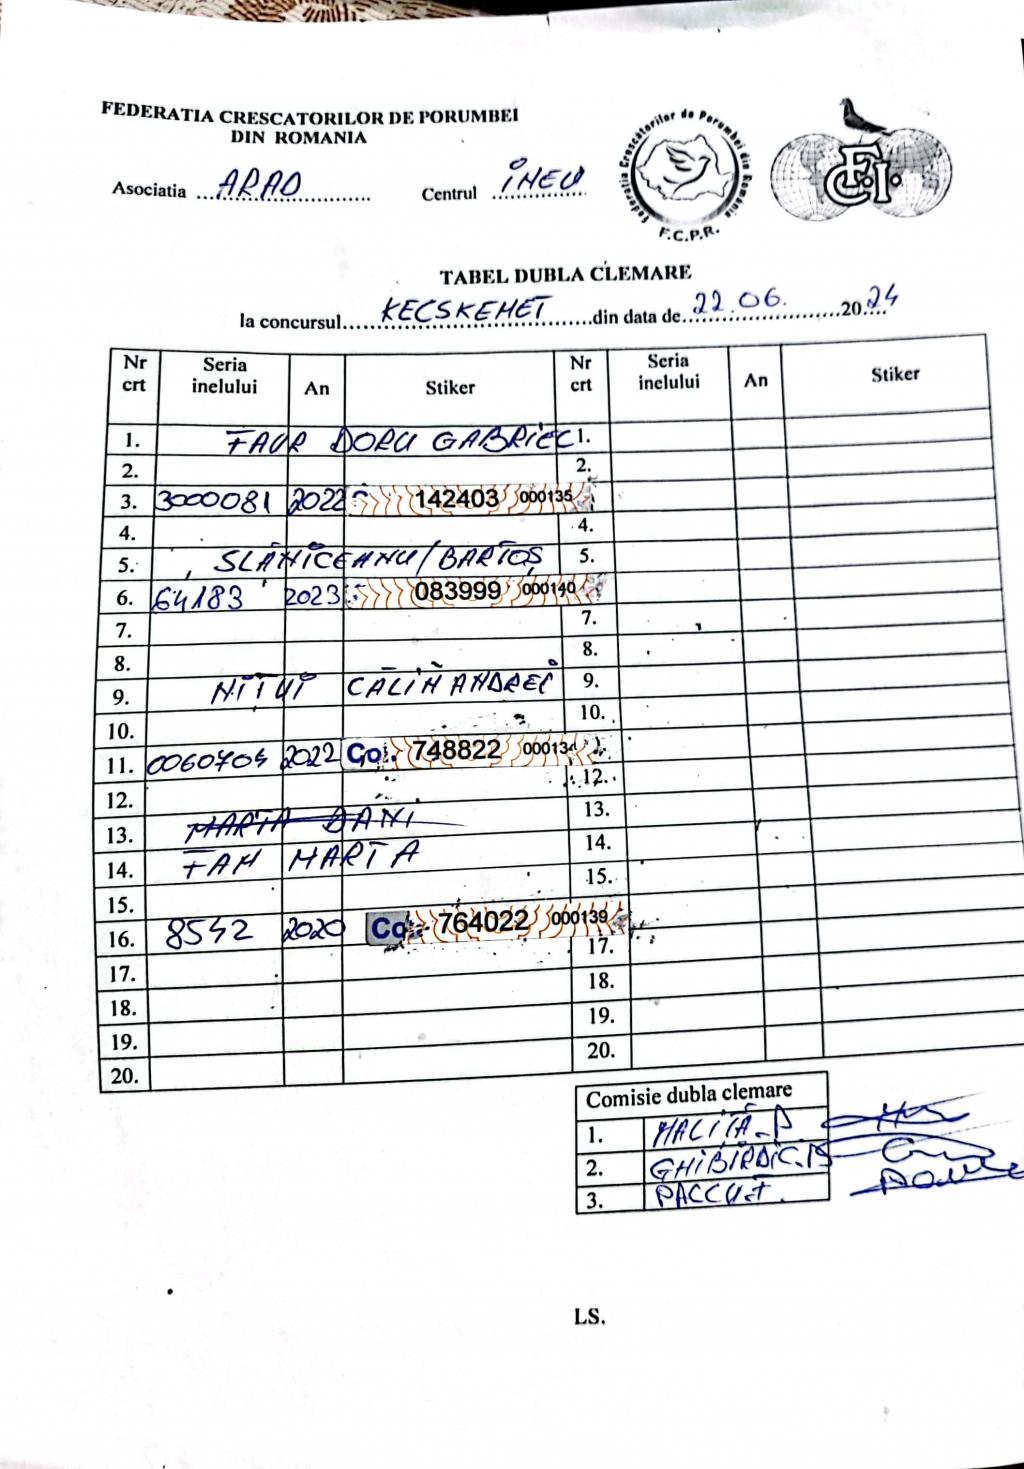 FEDERATIA CRESCATORILOR DE PORUMBEI
DIN ROMANIA
Asociatia ... ARAD
Centrul INEU
Federatia Crescatorilor de Porumbei din Romania
F.C.P.R.
FCI
TABEL DUBLA CLEMARE
la concursul KECSKEMET din data de 22.06. 2024
Nr crt Seria inelului An Stiker Nr crt Seria inelului An Stiker
1. FAUR DORU GABRIEL 1.
2. 2.
3. 3000081 2022 142403 000135
4. 4.
5. SLĂNICEANU/BARTOȘ 5.
6. 64183 2023 083999 000140
7. 7.
8. 8.
9. NIȚUI CĂLIN ANDREI 9.
10. 10.
11. 0060704 2022 Co 748822 000134
12. 12.
13. MARTA DANI 13.
14. FAM MARTA 14.
15. 15.
16. 8542 2020 Co 764022 000139
17. 17.
18. 18.
19. 19.
20. 20.
Comisie dubla clemare
1. MALIȚĂ.P
2. GHIBIRDIC.
3.
LS.